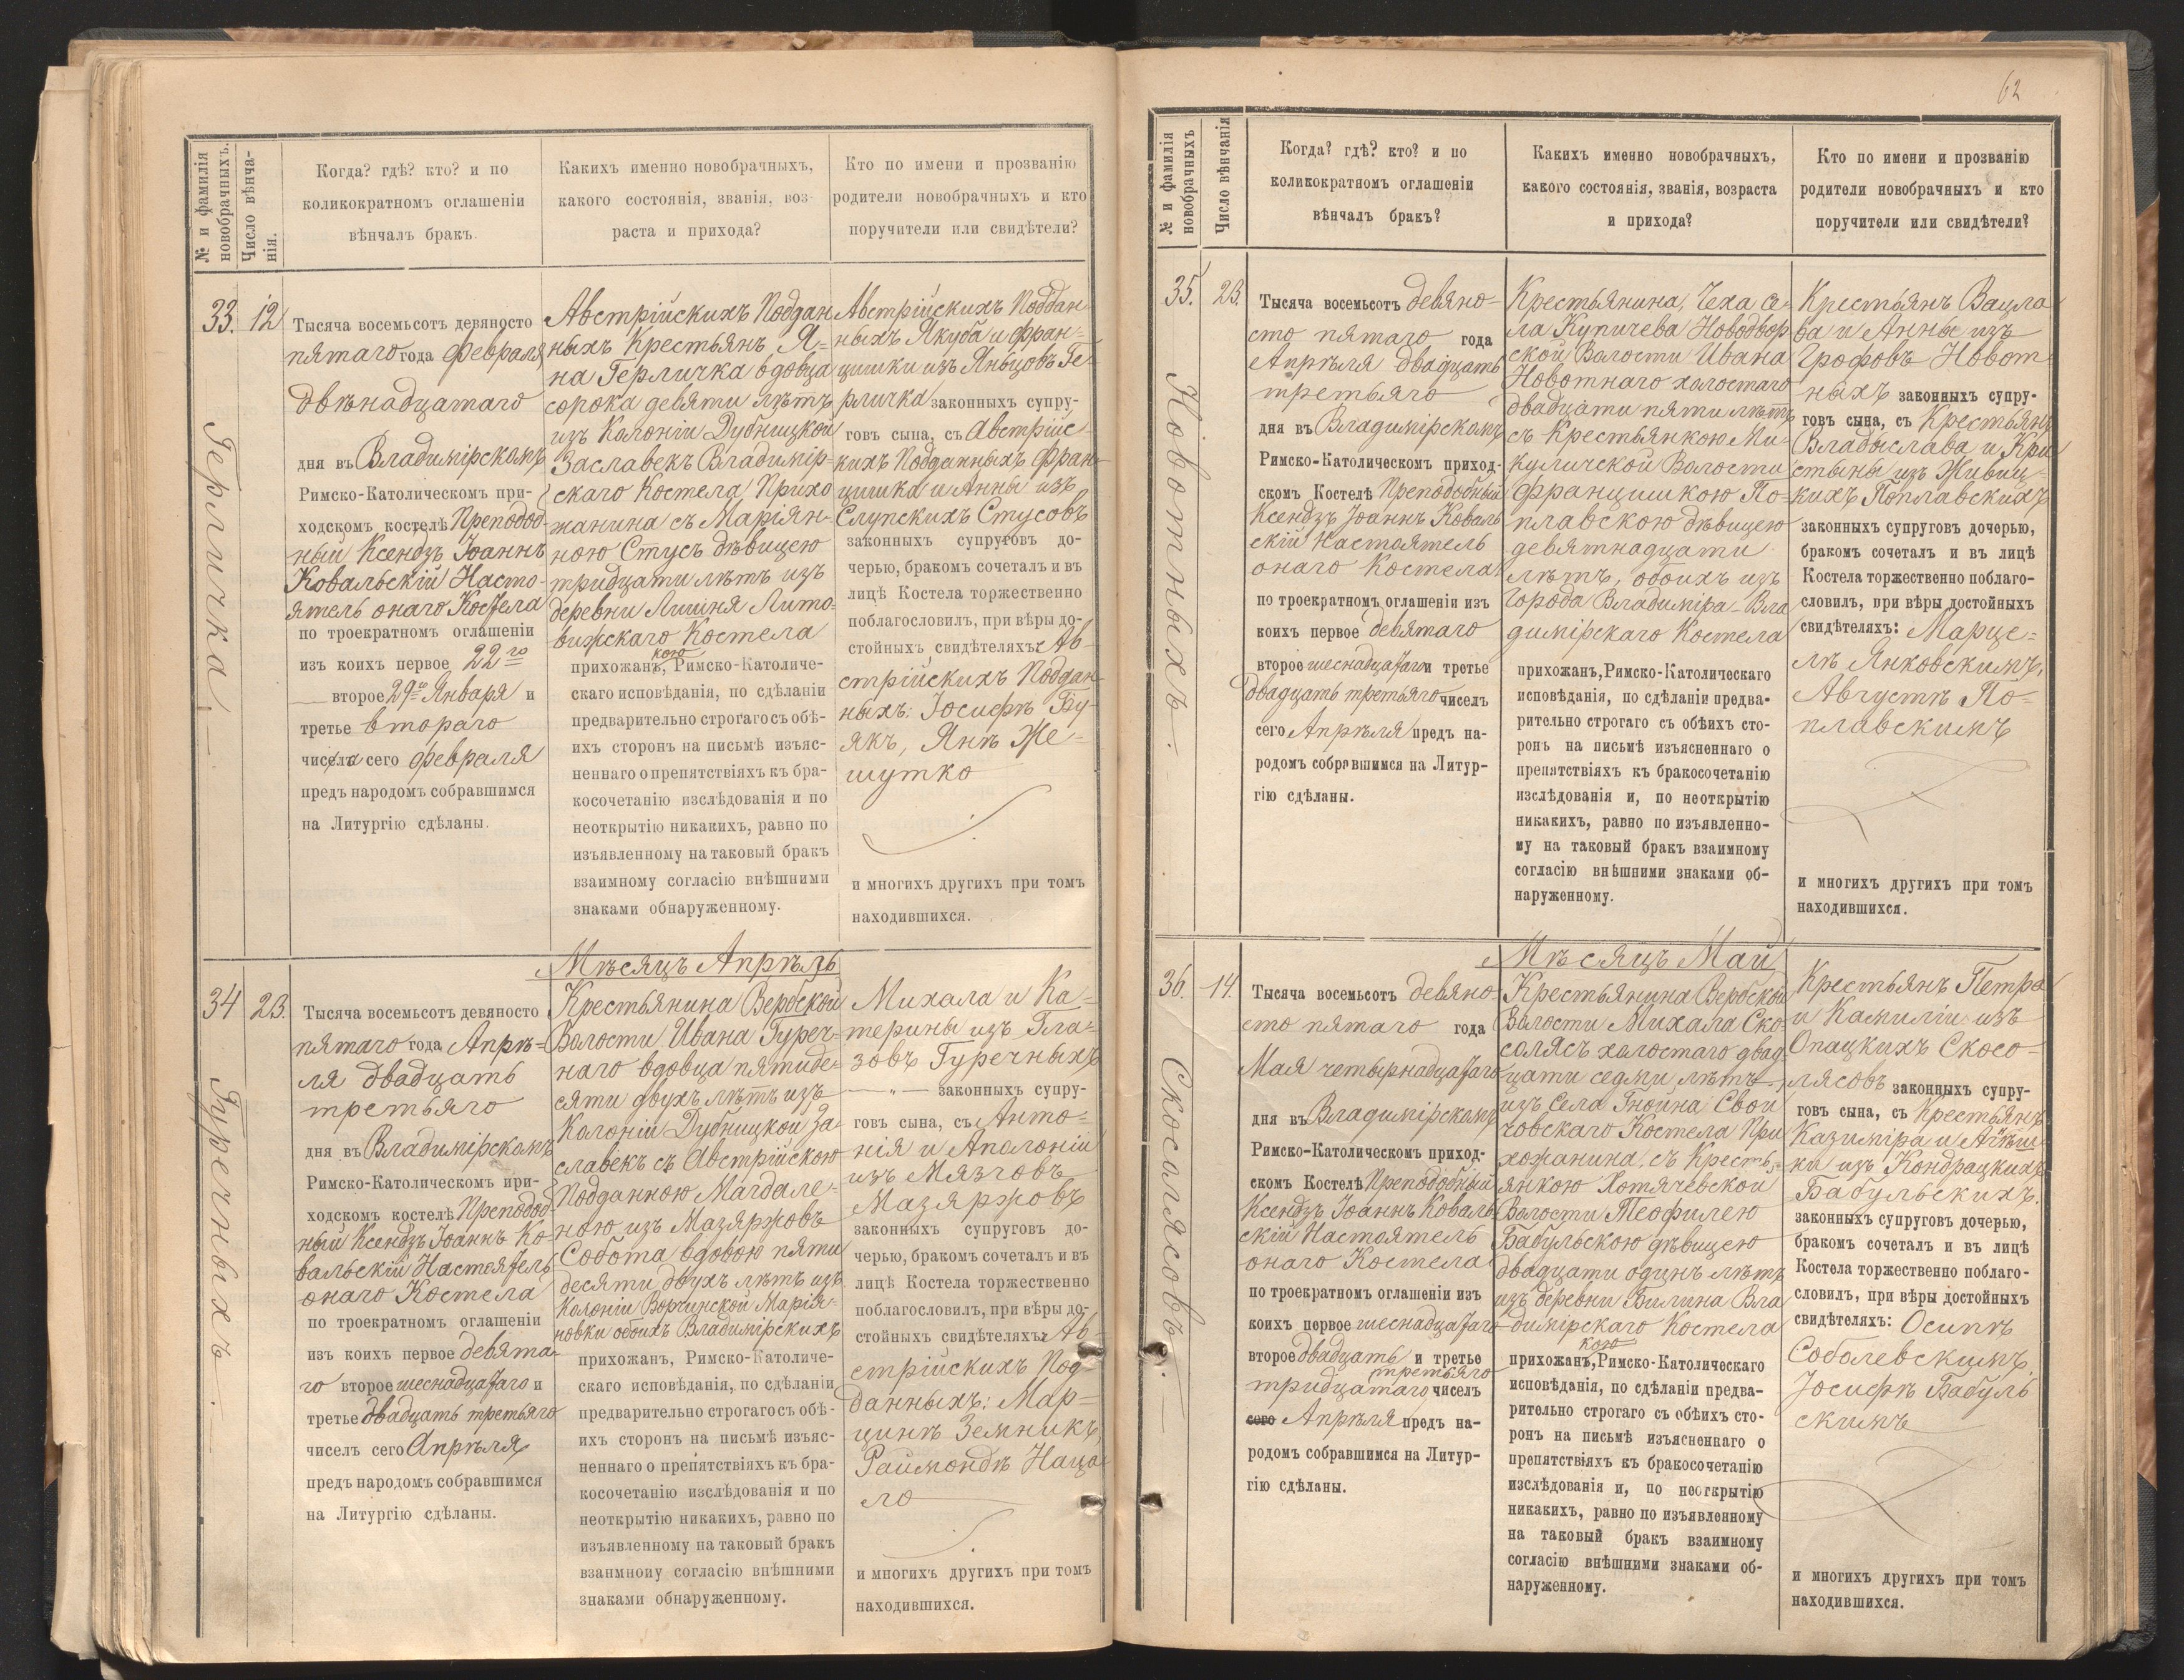 62
№ и фамилія
новобрачныхъ.
Число вѣнча-
нія.
Когда? гдѣ? кто? и по
коликократномъ оглашеніи
вѣнчалъ бракъ
Какихъ именно новобрачныхъ,
какого состоянія, званія, воз-
раста и прихода?
Кто по имени и прозванію
родители новобрачныхъ и кто
поручители или свидѣтели?
33.
Герличка
12
Тысяча восемьсотъ девяносто
пятаго года Февраля
двѣнадцатаго
дня въ Владимірскомъ
Римско-Католическомъ при-
ходскомъ костелѣ Преподоб-
ный Ксендзъ Іоаннъ
Ковальскій Насто-
ятель онаго Костела
по троекратномъ оглашеніи
изъ коихъ первое 22го
второе 29го Января и
третье втораго
числа сего Февраля
предъ народомъ собравшимся
на Литургію сдѣланы.
Австрійскихъ Поддан
ныхъ Крестьянъ Я-
на Герличка вдовца
сорока девяти лѣтъ
изъ Колоніи Дубницкой
Заславекъ Владимір-
скаго Костела Прихо
жанина съ Маріян-
ною Стусъ дѣвицею
тридцати лѣтъ изъ
деревни Лишня Лито-
вижскаго Костела
кою
прихожанъ, Римско-Католиче-
скаго исповѣданія, по сдѣланіи
предварительно строгаго съ обѣ-
ихъ сторонъ на письмѣ изъяс-
неннаго о препятствіяхъ къ бра-
косочетанію изслѣдованія и по
неоткрытію никакихъ, равно по
изъявленному на таковый бракъ
взаимному согласію внѣшними
знаками обнаруженному.
Австрійскихъ Поддан
ныхъ Якуба и Фран-
цишки изъ Яньцовъ Ге-
рличка законныхъ супру-
говъ сына, съ Австрійс-
кихъ Подданныхъ Фран
цишка и Анны изъ
Слупскихъ Стусовъ
законныхъ супруговъ до-
черью, бракомъ сочеталъ и въ
лицѣ Костела торжественно
поблагословилъ, при вѣры до-
стойныхъ свидѣтеляхъ: Ав-
стрійскихъ Поддан
ныхъ: Іосифѣ Бу-
якъ, Янѣ Же-
шутко
и многихъ другихъ при томъ
находившихся.
Мѣсяцъ Апрѣль
34
Гуречныхъ
23.
Тысяча восемьсотъ девяносто
пятаго года Апрѣ-
ля двадцать
третьяго
дня въ Владимірскомъ
Римско-Католическомъ при-
ходскомъ костелѣ Преподоб-
ный Ксендзъ Іоаннъ Ко-
вальскій Настоятель
онаго Костела
по троекратномъ оглашеніи
изъ коихъ первое девята-
го второе шеснадцатаго и
третье двадцать третьяго
чиселъ сего Апрѣля
предъ народомъ собравшимся
на Литургію сдѣланы.
Крестьянина Вербской
Волости Ивана Гуреч-
наго вдовца пятиде-
сяти двухъ лѣтъ изъ
Колоніи Дубницкой За-
славекъ съ Австрійскою
Подданною Магдале-
ною изъ Мазяржовъ
Собота вдовою пяти
десяти двухъ лѣтъ изъ
Колоніи Ворчинской Марія-
новки обоихъ Владимірскихъ
прихожанъ, Римско-Католиче-
скаго исповѣданія, по сдѣланіи
предварительно строгаго съ обѣ-
ихъ сторонъ на письмѣ изъяс-
неннаго о препятствіяхъ къ бра-
косочетанію изслѣдованія и по
неоткрытію никакихъ, равно по
изъявленному на таковый бракъ
взаимному согласію внѣшними
знаками обнаруженному.
Михала и Ка-
терины изъ Гла-
зовъ Гуречныхъ
— „ — законныхъ супру-
говъ сына, съ Анто-
нія и Аполоніи
изъ Мязговъ
Мазяржовъ
законныхъ супруговъ до-
черью, бракомъ сочеталъ и въ
лицѣ Костела торжественно
поблагословилъ, при вѣры до-
стойныхъ свидѣтеляхъ: Ав-
стрійскихъ Под-
данныхъ: Мар-
цинѣ Земникъ,
Раймондѣ Наца-
ло
и многихъ другихъ при томъ
находившихся.
№ и фамилія
новобрачныхъ
Число вѣнчанія
Когда? гдѣ? кто? и по
коликократномъ оглашеніи
вѣнчалъ бракъ?
Какихъ именно новобрачныхъ,
какого состоянія, званія, возраста
и прихода?
Кто по имени и прозванію
родители новобрачныхъ и кто
поручители или свидѣтели?
35.
Новотныхъ.
23.
Тысяча восемьсотъ девяно-
сто пятаго года
Апрѣля двадцать
третьяго
дня въ Владимірскомъ
Римско-Католическомъ приход-
скомъ Костелѣ Преподобный
Ксендзъ Іоаннъ Коваль
скій Настоятель
онаго Костела
по троекратномъ оглашеніи изъ
коихъ первое девятаго
второе шеснадцатаго и третье
двадцать третьяго чиселъ
сего Апрѣля предъ на-
родомъ собравшимся на Литур-
гію сдѣланы.
Крестьянина, Чеха се-
ла Купичева Новодвор
ской Волости Ивана
Новотнаго холостаго
двадцати пяти лѣтъ
съ Крестьянкою Ми-
куличской Волости
Францишкою По-
плавскою дѣвицею
девятнадцати
лѣтъ, обоихъ изъ
города Владиміра-Вла
димірскаго Костела
прихожанъ, Римско-Католическаго
исповѣданія, по сдѣланіи предва-
рительно строгаго съ обѣихъ сто-
ронъ на письмѣ изъясненнаго о
препятствіяхъ къ бракосочетанію
изслѣдованія и, по неоткрытію
никакихъ, равно по изъявленно-
му на таковый бракъ взаимному
согласію внѣшними знаками об-
наруженному.
Крестьянъ Вацла
ва и Анны изъ
Грофовъ Новот-
ныхъ законныхъ супру-
говъ сына, съ Крестьянъ
Владыслава и Кри
стыны изъ Живиц-
кихъ Поплавскихъ
законныхъ супруговъ дочерью,
бракомъ сочеталъ и въ лицѣ
Костела торжественно поблаго-
словилъ, при вѣры достойныхъ
свидѣтеляхъ: Марце-
лѣ Янковскимъ,
Августѣ По-
плавскимъ
и многихъ другихъ при томъ
находившихся.
Мѣсяцъ Май
36.
Скосолясовъ.
14.
Тысяча восемьсотъ девяно-
сто пятаго года
Мая четырнадцатаго
дня въ Владимірскомъ
Римско-Католическомъ приход-
скомъ Костелѣ Преподобный
Ксендзъ Іоаннъ Коваль
скій Настоятель
онаго Костела
по троекратномъ оглашеніи изъ
коихъ первое шеснадцатаго
второе двадцать и третье
третьяго
тридцатаго чиселъ
сего Апрѣля предъ на-
родомъ собравшимся на Литур-
гію сдѣланы.
Крестьянина Вербской
Волости Михала Ско-
солясъ холостаго двад
цати седми лѣтъ
изъ Села Гнойна Свой
човскаго Костела При
хожанина, съ Кресть-
янкою Хотячевской
Волости Теофилею
Бабульскою дѣвицею
двадцати одинъ лѣтъ
изъ деревни Билина Вла
димірскаго Костела
кою
прихожанъ, Римско-Католическаго
исповѣданія, по сдѣланіи предва-
рительно строгаго съ обѣихъ сто-
ронъ на письмѣ изъясненнаго о
препятствіяхъ къ бракосочетанію
изслѣдованія и, по неоткрытію
никакихъ, равно по изъявленному
на таковый бракъ взаимному
согласію внѣшними знаками об-
наруженному.
Крестьянъ Петра
и Камиліи изъ
Опацкихъ Скосо-
лясовъ законныхъ супру-
говъ сына, съ Крестьянъ
Казиміра и Агнѣш-
ки изъ Кондрацкихъ
Бабульскихъ.
законныхъ супруговъ дочерью,
бракомъ сочеталъ и въ лицѣ
Костела торжественно поблаго-
словилъ, при вѣры достойныхъ
свидѣтеляхъ: Осипѣ
Соболевскимъ,
Іосифѣ Бабуль
скимъ
и многихъ другихъ при томъ
находившихся.